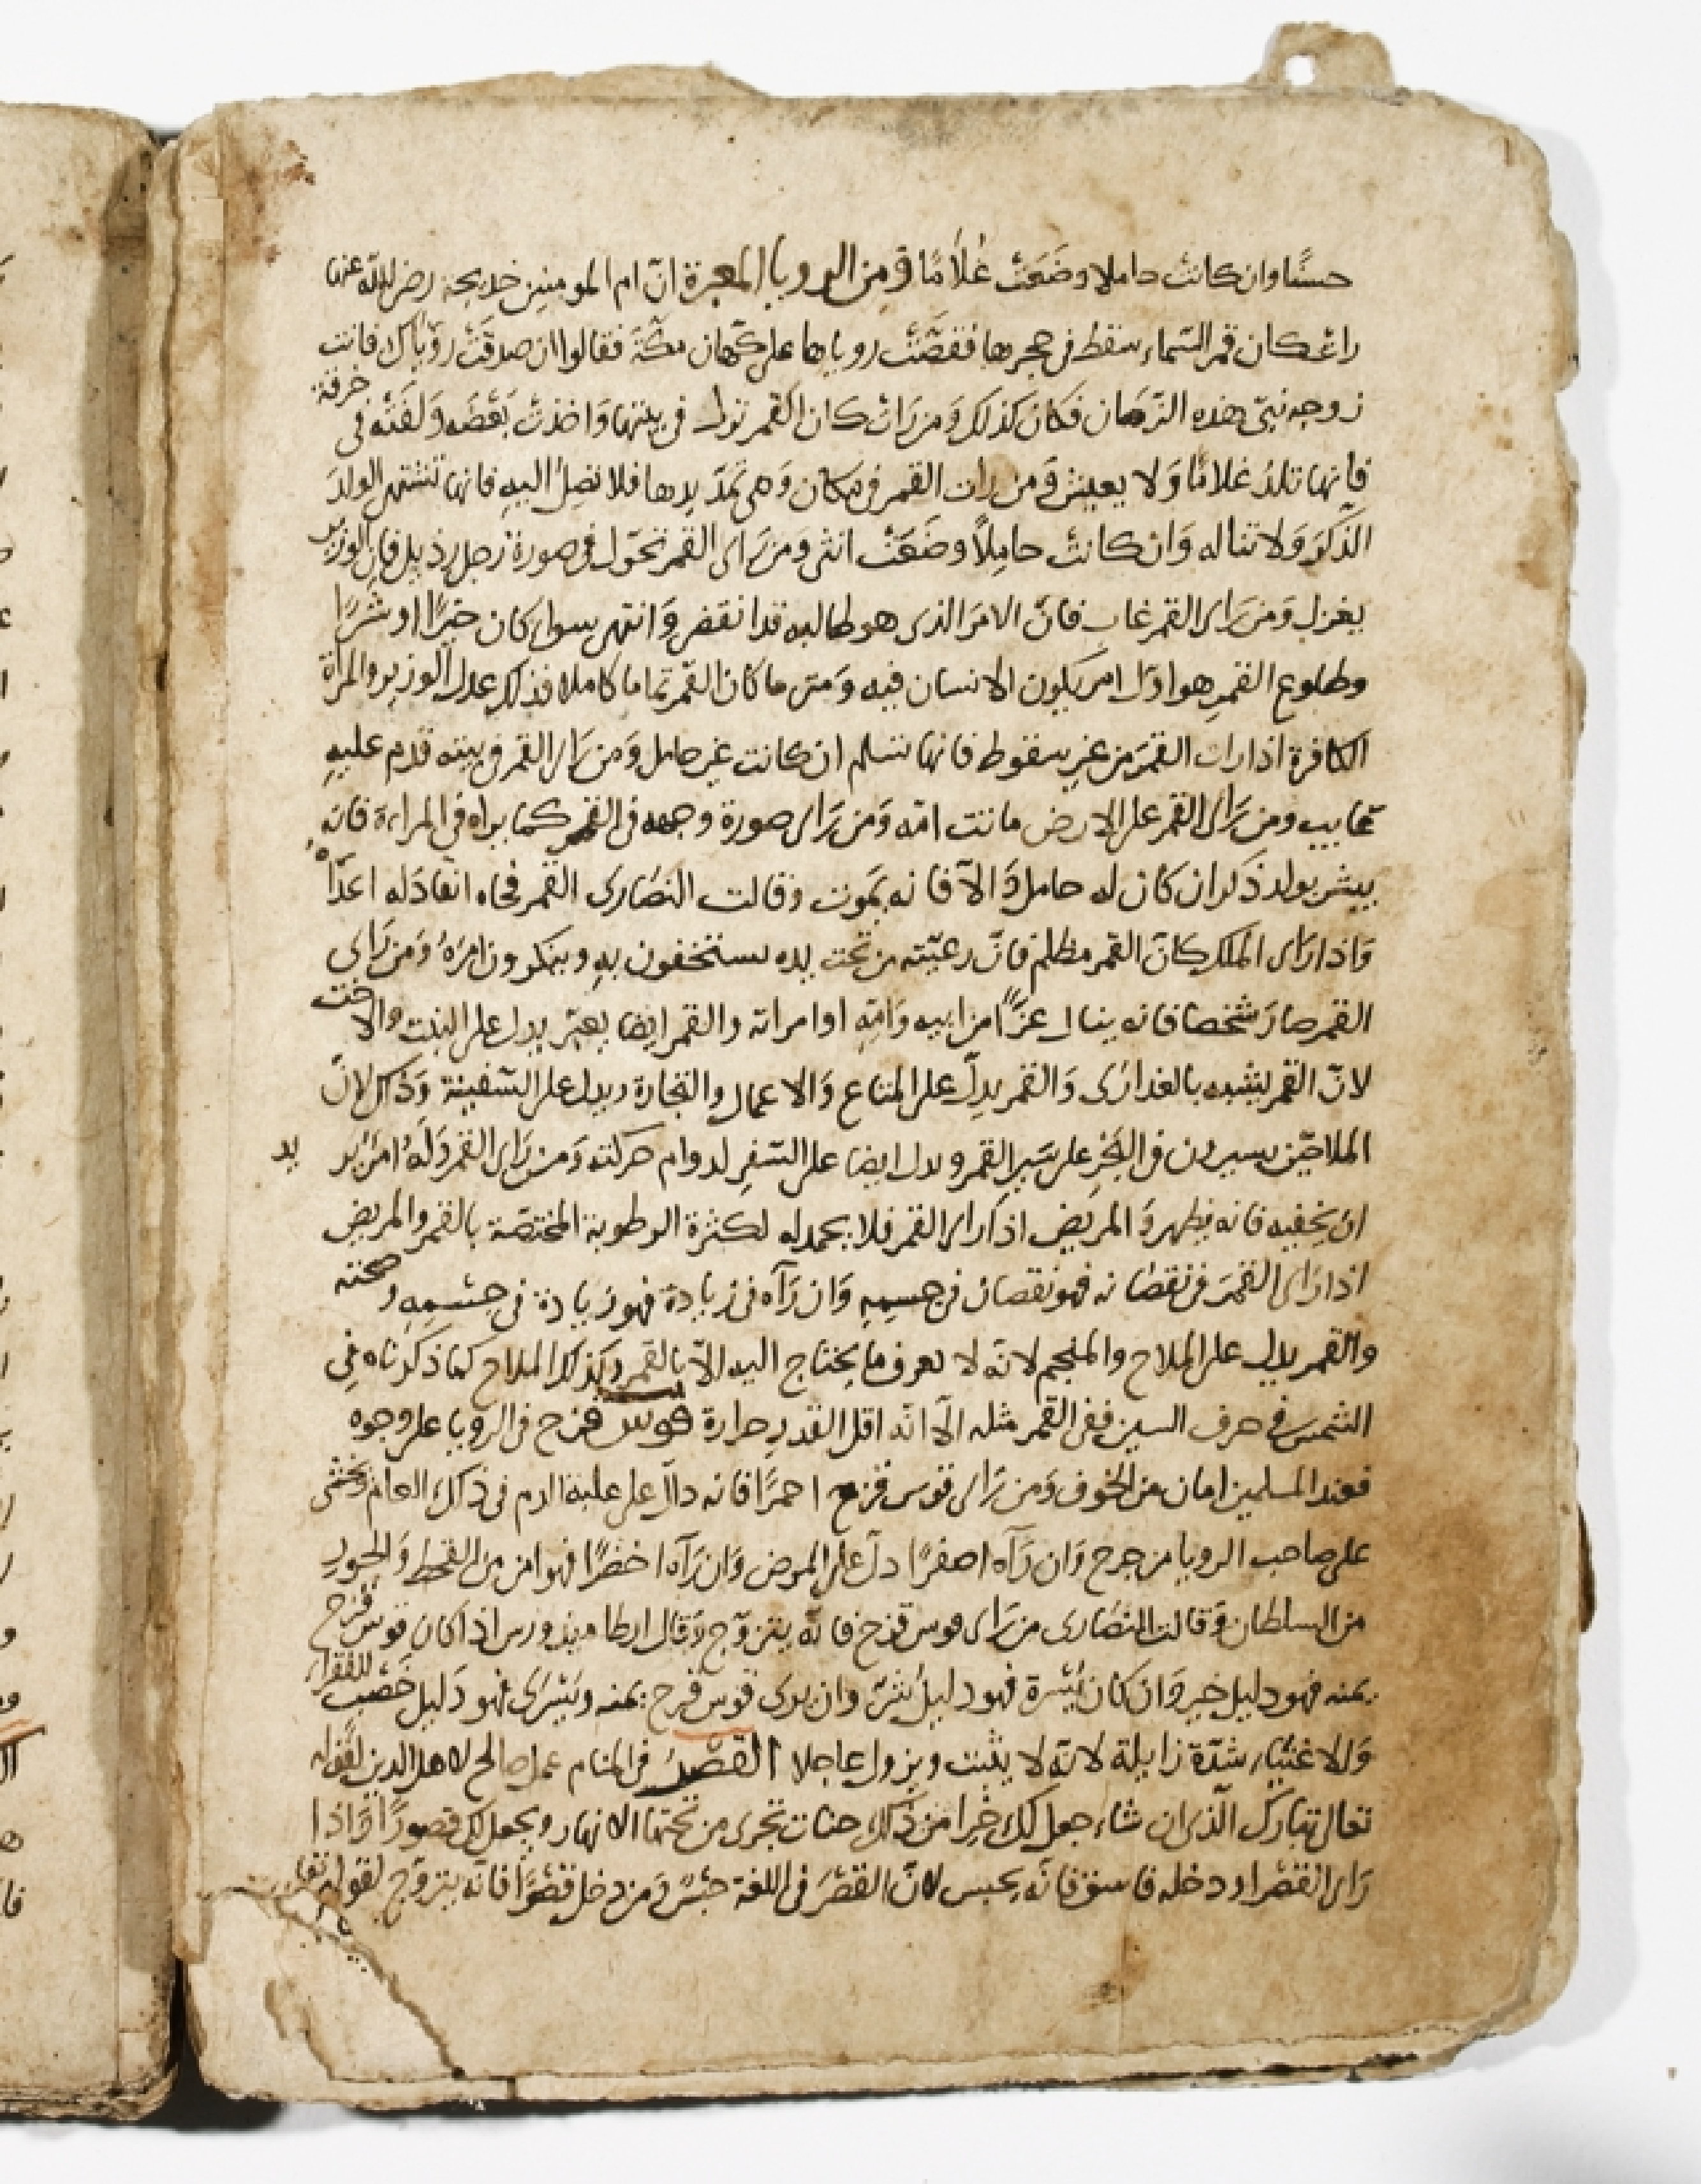 حسنًا وان كانت حاملا وضَعَتْ غُلامًا ومن الرويا المعبرة انّ ام المومنين خديجة رضي الله عنها
رات كان قمر السّماء سقط في حجرها فقصَّتْ روياها على كهان مكّة فقالوا ان صدقَتْ رؤياك فانت
زوجه نبيّ هذه الزمان فكان كذلك وَمن رَات كان القمر نزل في بيتها وَاخذتْ بَعْضَه وَلفَتْه في خرقة
فانها تلدُ غلامًا وَلا يعيش وَمن رات القمر في مكان وَهي تمدّ يدها فلا تصِلُ اليهِ فانها تشتهي الولدَ
الذّكرَ وَلا تناله وَان كانتْ حامِلاً وضَعَتْ انثى ومن رَاى القمر تحوّل في صورة رَجل رذيل فان الوزير
يعزل وَمن رَاى القمر غاب فانّ الامرَ الذى هو طالبه قد انقضى وَانتهى سواء كان خيرًا او شرًا
وطلوع القمرِ هو اوّل امر يكون الانسان فيه وَمتى ما كان القمر تماما كاملا فذلك عدل الوزير والمرأة
الكافرة اذا رات القمرَ من غيرِ سقوط فانها تسلم ان كانت غير حامل وَمن رَاى القمر في بيته قدم عليهِ
غايب ومن رَاى القمر على الارض ماتت امّه وَمن رَاى صورة وجهه في القمر كما يراه في المراءة فانه
يبشر بولد ذكر ان كان له حامل وَالاّ فانه يمَوت وقالت النصَارى القمر فجاه انقادَ له اعدَاه
وَاذا رَاى الملك كانّ القمر مظلم فانّ رعيّته من تحت يده يستخفون بهِ وينكرون امرَهُ وَمن رَاى
القمر صارَ شخصا فانه ينال عزًّا من ابيه وَامّهِ او امراته والقمر ايضا يعبر يدل على البنت والاخت
لانّ القمر يشبه بالعذارَى وَالقمر يدلّ على المتاع وَالاعمال والتجارة ويدل على السّفينة وَذلك لانّ
الملاحيّن يسيرون في البَحْرِ على سَير القمر ويدل ايضا على السّفرِ لدوام حركته وَمن رَاى القمرَ وَلَهُ امرٌ يريد
ان يخفيه فانه يظهر وَالمريض اذا رَاى القمر فلا يحمد له لكثرة الرطوبة المختصّة بالقمر والمريض
اذا رَاى القمَرَ في نقصَانه فهو نقصان في جسمهِ وَان رَآه في زيادة فهو زيَادة في جسمِهِ وصحته
والقمر يدل على الملاح والمنجم لانّه لا يعرف ما يحتاج اليه الاّ بالقمر وكذلك الملاح كما ذكرنَاه في
الشمس في حرف السين ففي القمر مثله الّا انّه اقل القدر حرارة قوس قزح في الرويا على وجوه
فعند المسلمين امان من الخوف وَمن رَاى قوس قزح احمرًا فانه دالّ على غلبة الدم في ذلك العام ويخشى
على صاحب الرويا من جرح وَان رَآه اصفرًا دلّ على المرض وَان رَآه اخضرًا فهو امن من القحط وَالجور
من السلطان وَقالت النصَارى من رَاى قوس قزح فانّه يتزوّج وَقال ارطاميدورس اذا كان قوس قزح
يمنه فهو دليل خير وَان كان يُسْرة فهو دليل شرّ وان يرى قوس قزح يمنه ويَسْرَى فهو دَليل خصْب للفقراء
وَللاغنياء شدّة زايلة لانّه لا يثبت ويزول عاجلا القصْرُ في المنام عمل صالح لاهل الدين لقوله
تعالى تبارك الّذى ان شاء جعل لك خيرا من ذلك جنات تجرى من تحتها الانهار ويجعل لك قصورًا وَاذا
رَاى القصْر او دخله فاسق فانّه يحبس لانّ القصْرَ في اللغة حبسٌ وَمن دخل قصْرًا فانّه يتزوّج لقوله تعا